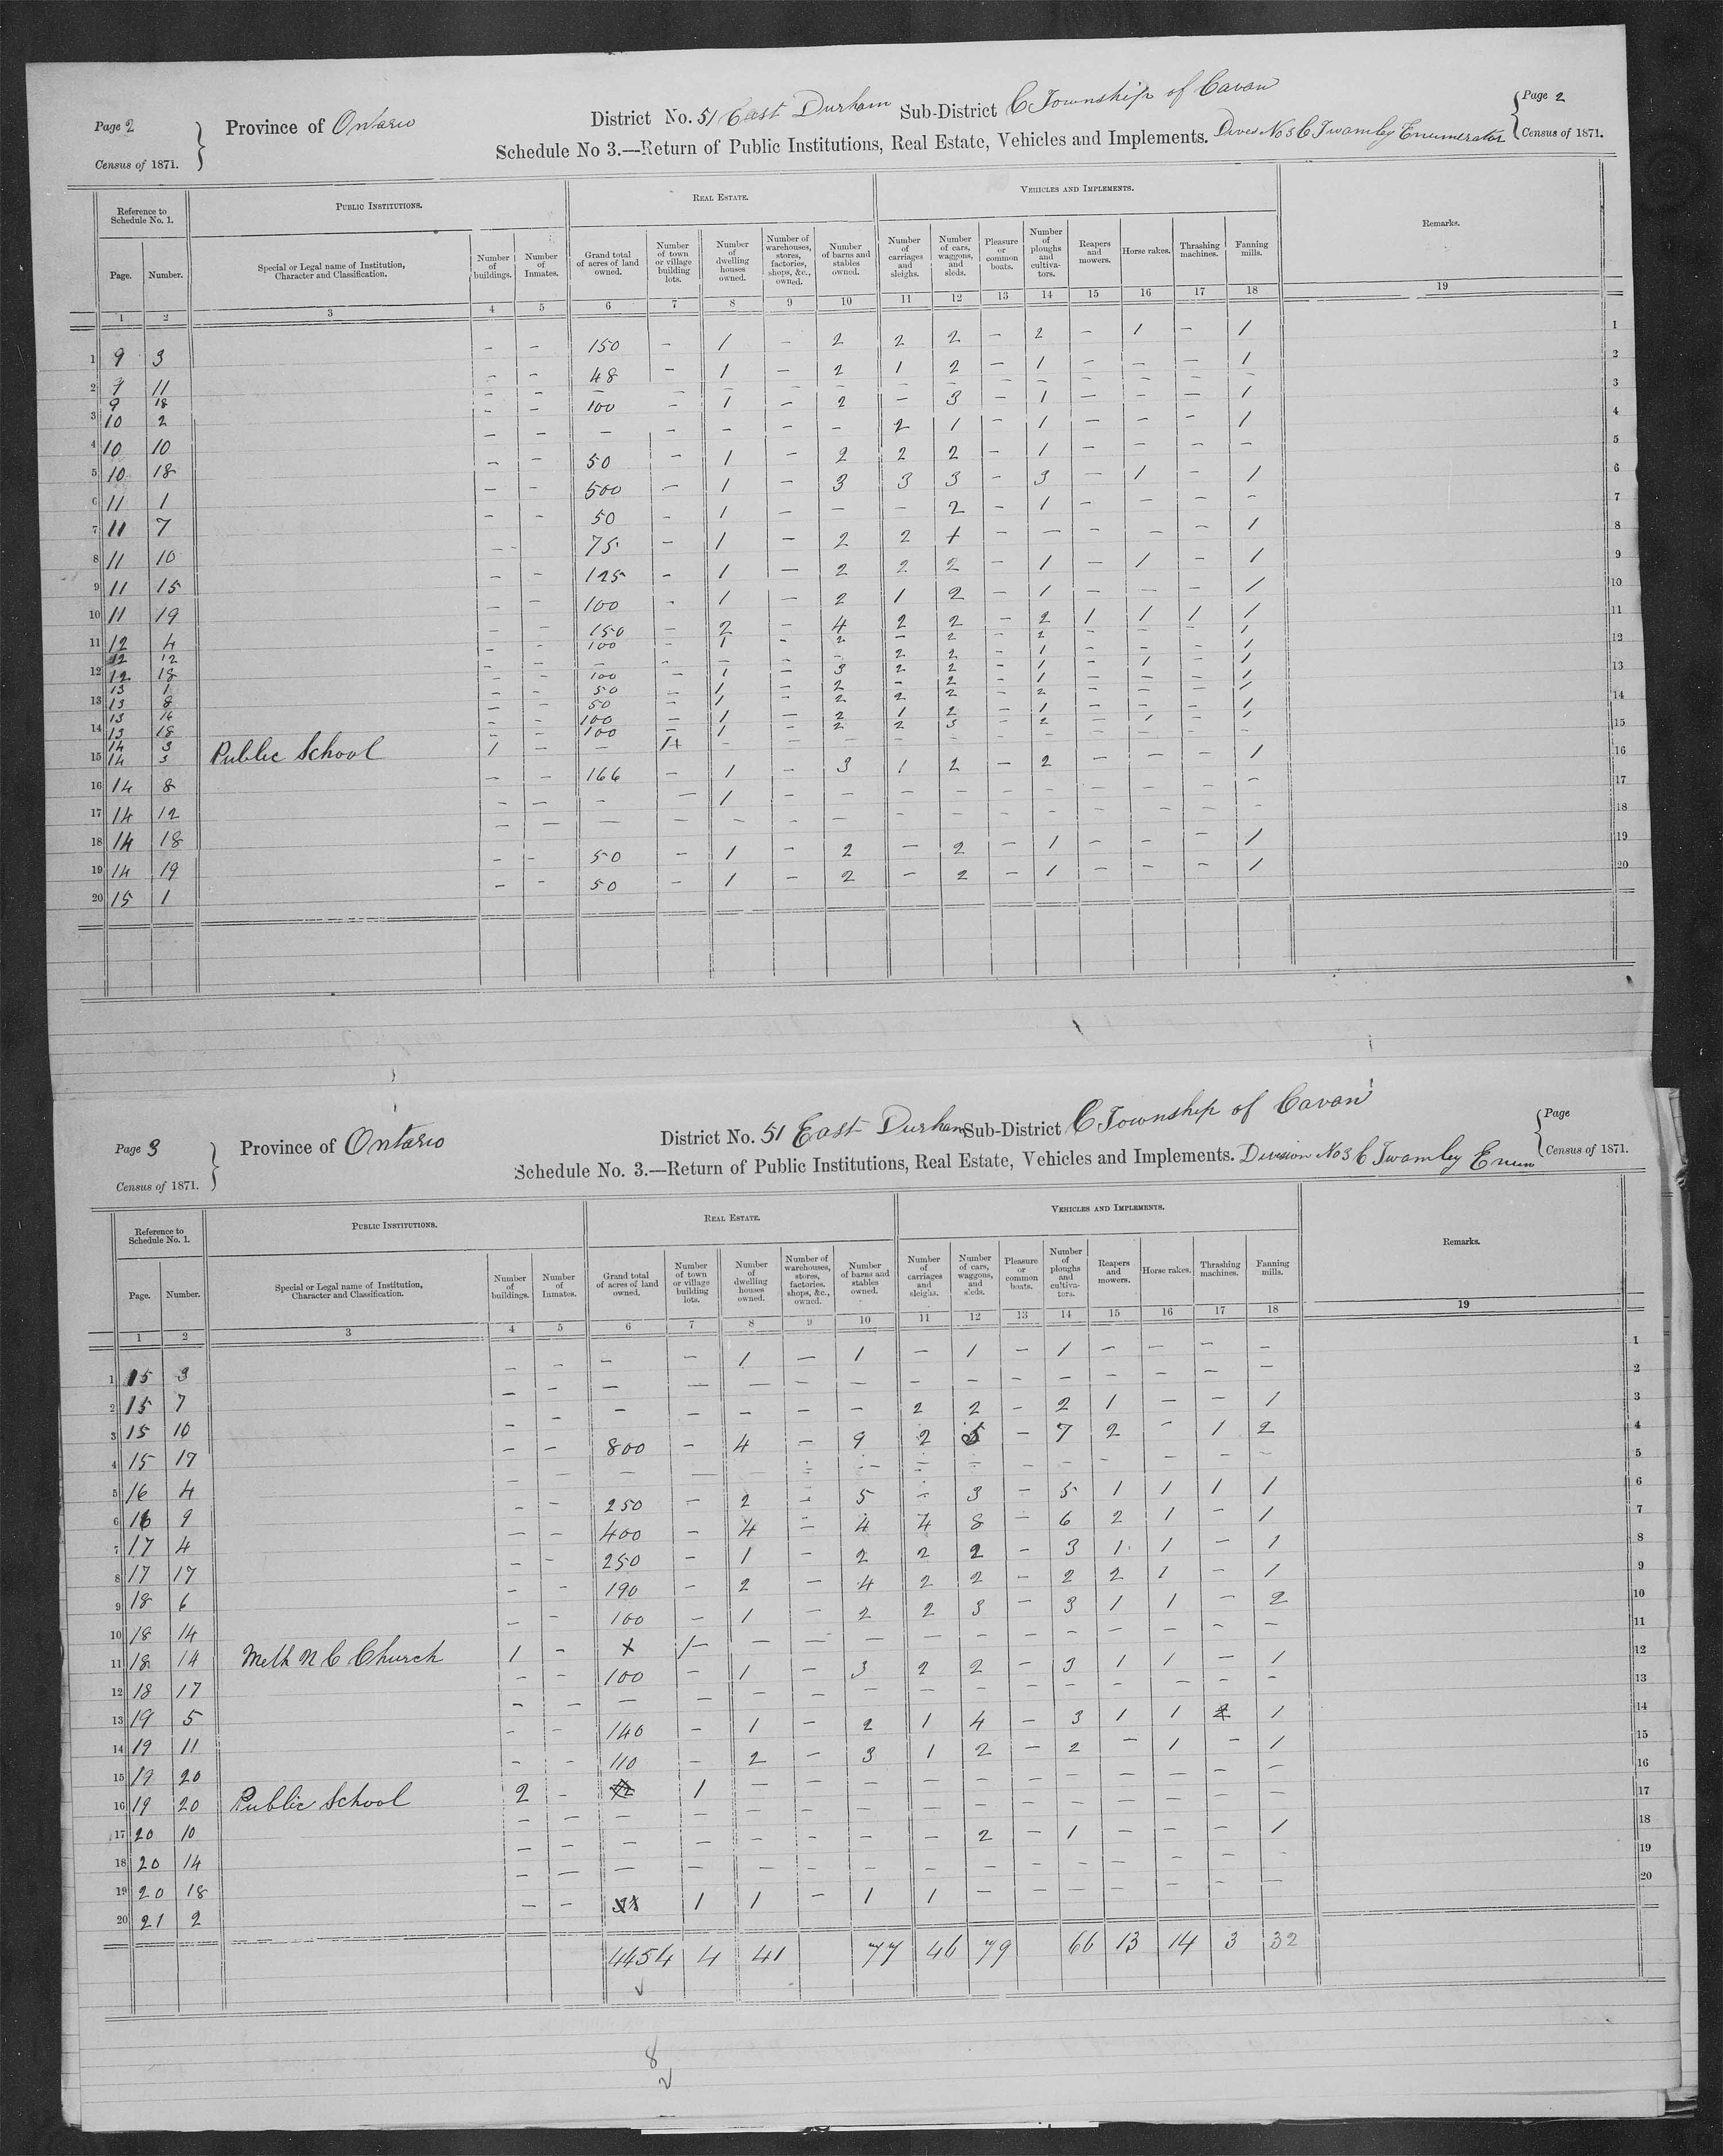 Page 2
Census of 1871.
Province of Ontario
District No. 51 East Durham Sub-District C Township of Cavan
Schedule No 3.—Return of Public Institutions, Real Estate, Vehicles and Implements. Dives No 3 C Twamley Enumerator
Page 2
Census of 1871.
Reference to Schedule No. 1.
Public Institutions.
Real Estate.
Vehicles and Implements.
Remarks.
Page. Number. Special or Legal name of Institution, Character and Classification. Number of buildings. Number of Inmates. Grand total of acres of land owned. Number of town or village building lots. Number of dwelling houses owned. Number of warehouses, stores, factories, shops, &c., owned. Number of barns and stables owned. Number of carriages and sleighs. Number of cars, waggons, and sleds. Pleasure or common boats. Number of ploughs and cultivators. Reapers and mowers. Horse rakes. Thrashing machines. Fanning mills.
1 2 3 4 5 6 7 8 9 10 11 12 13 14 15 16 17 18 19
1 9 3 — — 150 — 1 — 2 2 2 — 2 — 1 — 1 1
2 9 11 — — 48 — 1 — 2 1 2 — 1 — — — 1 2
9 18 — — — — — — — — — — — — — — — 3
3 10 2 — — 100 — 1 — 2 — 3 — 1 — — — 1
4 10 10 — — — — — — — 2 1 — 1 — — — 1 4
5 10 18 — — 50 — 1 — 2 2 2 — 1 — — — — 5
6 11 1 — — 500 — 1 — 3 3 3 — 3 — 1 — 1 6
7 11 7 — — 50 — 1 — — — 2 — 1 — — — — 7
8 11 10 — — 75 — 1 — 2 2 1 — — — — — 1 8
9 11 15 — — 125 — 1 — 2 2 2 — 1 — 1 — 1 9
10 11 19 — — 100 — 1 — 2 1 2 — 1 — — — 1 10
11 12 4 — — 150 — 2 — 4 2 2 — 2 1 1 1 1 11
12 12 — — 100 — 1 — 2 — 2 — 2 — — — 1 12
12 12 18 — — — — — — — 2 2 — 1 — — — 1
13 1 — — 100 — 1 — 3 2 2 — 1 — 1 — 1 13
13 13 8 — — 50 — 1 — 2 — 2 — 1 — — — 1
13 16 — — 50 — 1 — 2 2 2 — 2 — — — 1 14
14 13 18 — — 100 — 1 — 2 1 2 — 1 — — — 1
14 3 — — 100 — 1 — 2 2 3 — 2 — 1 — 1 15
15 14 3 Public School 1 — — 1+ — — — — — — — — — — —
16 14 8 — — 166 — 1 — 3 1 2 — 2 — — — 1 16
17 14 12 — — — — 1 — — — — — — — — — — 17
18 14 18 — — — — — — — — — — — — — — — 18
19 14 19 — — 50 — 1 — 2 — 2 — 1 — — — 1 19
20 15 1 — — 50 — 1 — 2 — 2 — 1 — — — 1 20
Page 3
Census of 1871.
Province of Ontario
District No. 51 East Durham Sub-District C Township of Cavan
Schedule No. 3.—Return of Public Institutions, Real Estate, Vehicles and Implements. Division No 3 C Twamley Enum
Page
Census of 1871.
Reference to Schedule No. 1.
Public Institutions.
Real Estate.
Vehicles and Implements.
Remarks.
Page. Number. Special or Legal name of Institution, Character and Classification. Number of buildings. Number of Inmates. Grand total of acres of land owned. Number of town or village building lots. Number of dwelling houses owned. Number of warehouses, stores, factories. shops, &c., owned. Number of barns and stables owned. Number of carriages and sleighs. Number of cars, waggons, and sleds. Pleasure or common boats. Number of ploughs and cultivators. Reapers and mowers. Horse rakes. Thrashing machines. Fanning mills.
1 2 3 4 5 6 7 8 9 10 11 12 13 14 15 16 17 18 19
1 15 3 — — — — 1 — 1 — 1 — 1 — — — — 1
2 15 7 — — — — — — — — — — — — — — — 2
3 15 10 — — — — — — — 2 2 — 2 1 — — 1 3
4 15 17 — — 800 — 4 — 9 2 5 — 7 2 — 1 2 4
5 16 4 — — — — — — — — — — — — — — — 5
6 16 9 — — 250 — 2 — 5 — 3 — 5 1 1 1 1 6
7 17 4 — — 400 — 4 — 4 4 8 — 6 2 1 — 1 7
8 17 17 — — 250 — 1 — 2 2 2 — 3 1 1 — 1 8
9 18 6 — — 190 — 2 — 4 2 2 — 2 2 1 — 1 9
10 18 14 — — 100 — 1 — 2 2 3 — 3 1 1 — 2 10
11 18 14 Meth N C Church 1 — + 1— — — — — — — — — — — — 11
12 18 17 — — 100 — 1 — 3 2 2 — 3 1 1 — 1 12
13 19 5 — — — — — — — — — — — — — — — 13
14 19 11 — — 140 — 1 — 2 1 4 — 3 1 1 1 14
15 19 20 — — 110 — 2 — 3 1 2 — 2 — 1 — 1 15
16 19 20 Public School 2 — 1 — — — — — — — — — — — 16
17 20 10 — — — — — — — — — — — — — — — 17
18 20 14 — — — — — — — — 2 — 1 — — — 1 18
19 20 18 — — — — — — — — — — — — — — — 19
20 21 2 — — 1 1 — 1 1 — — — — — — — 20
4454 4 41 77 46 79 66 13 14 3 32
8